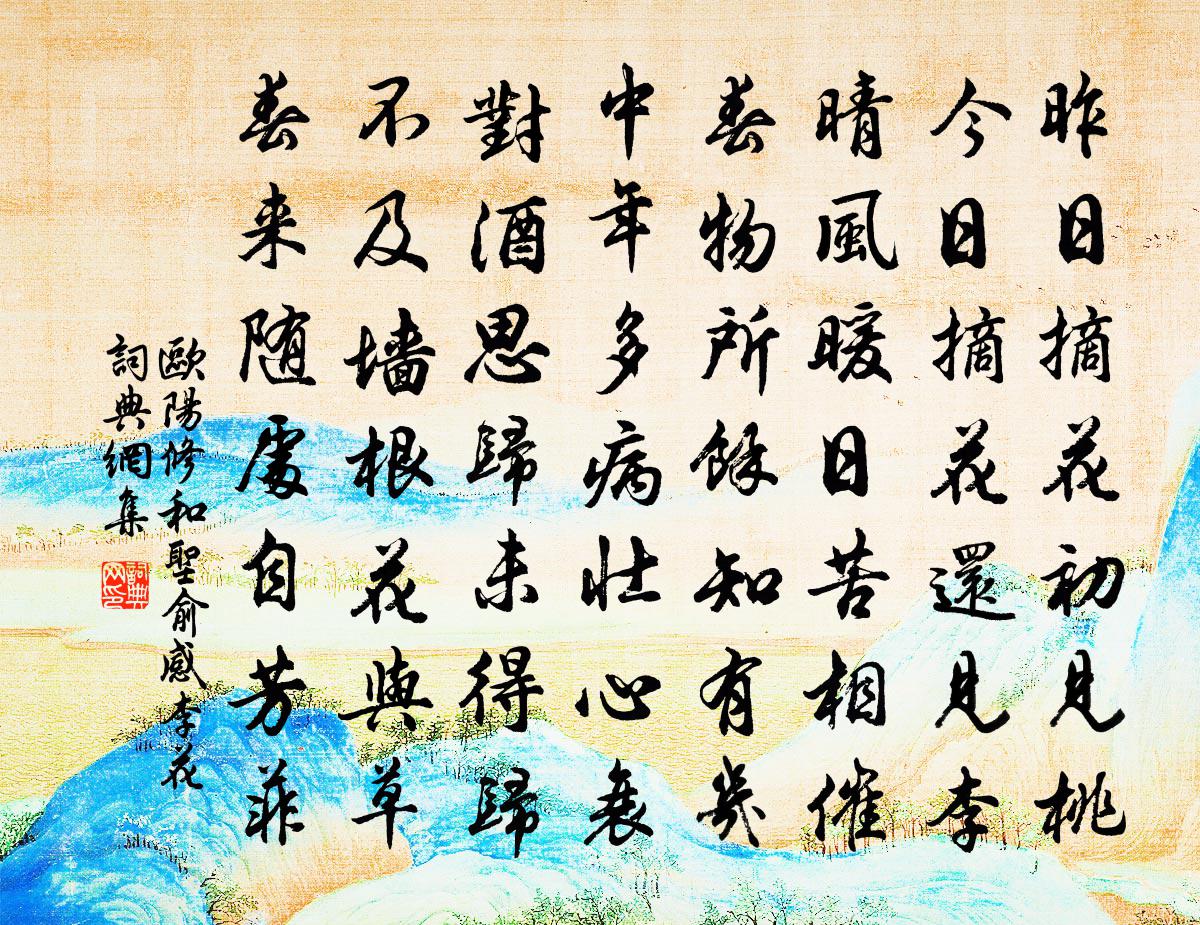 昨日摘花初見桃
今日摘花還見李
晴風暖日苦相催
春物所餘知有幾
中年多病壯心衰
對酒思歸未得歸
不及墻根花與草
春来随處自芳菲
歐陽修和聖俞感李花
詞典網集
詞典网印